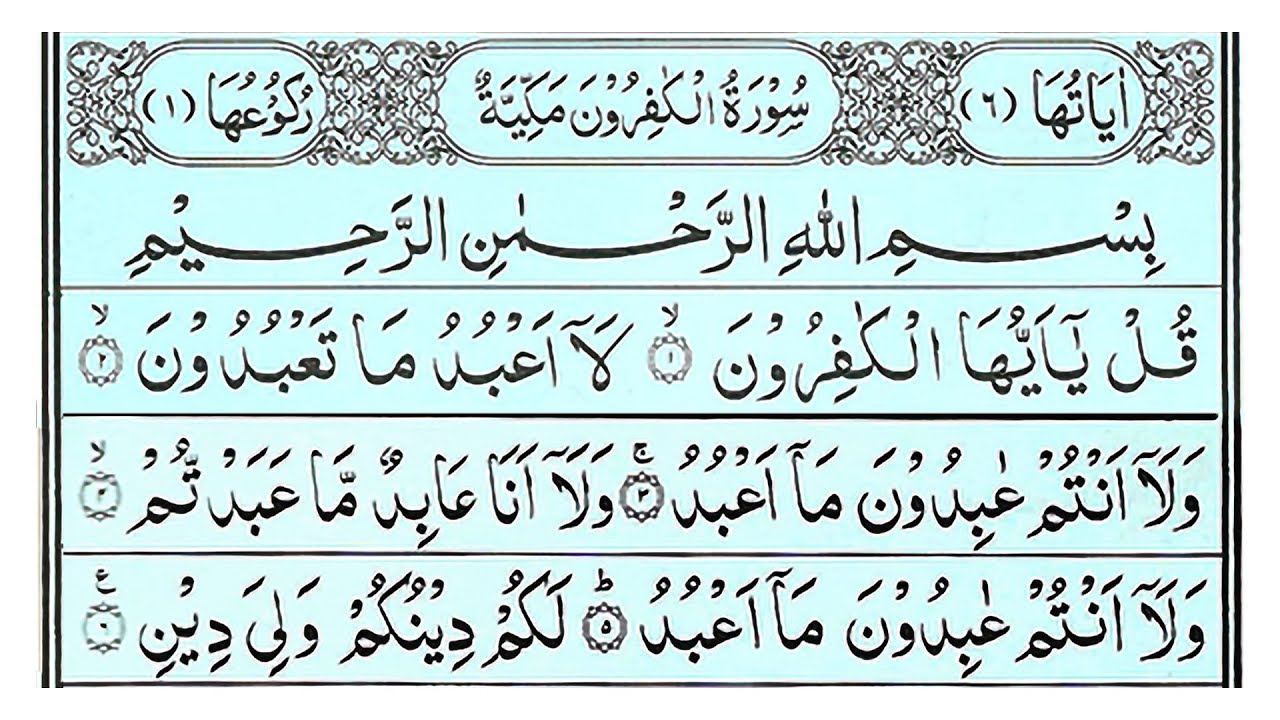 اٰيَاتُهَا (٦) سُوْرَةُ الْكٰفِرُوْنَ مَكِّيَّةٌ رُكُوْعُهَا (١)
بِسْمِ اللّٰهِ الرَّحْمٰنِ الرَّحِيْمِ
قُلْ يٰٓاَيُّهَا الْكٰفِرُوْنَ ۙ﴿١﴾ لَاۤ اَعْبُدُ مَا تَعْبُدُوْنَ ۙ﴿٢﴾
وَلَاۤ اَنْتُمْ عٰبِدُوْنَ مَاۤ اَعْبُدُ ۚ﴿٣﴾ وَلَاۤ اَنَا عَابِدٌ مَّا عَبَدْتُّمْ ۙ﴿٤﴾
وَلَاۤ اَنْتُمْ عٰبِدُوْنَ مَاۤ اَعْبُدُ ؕ﴿٥﴾ لَكُمْ دِيْنُكُمْ وَلِيَ دِيْنِ ﴿٦﴾ ع